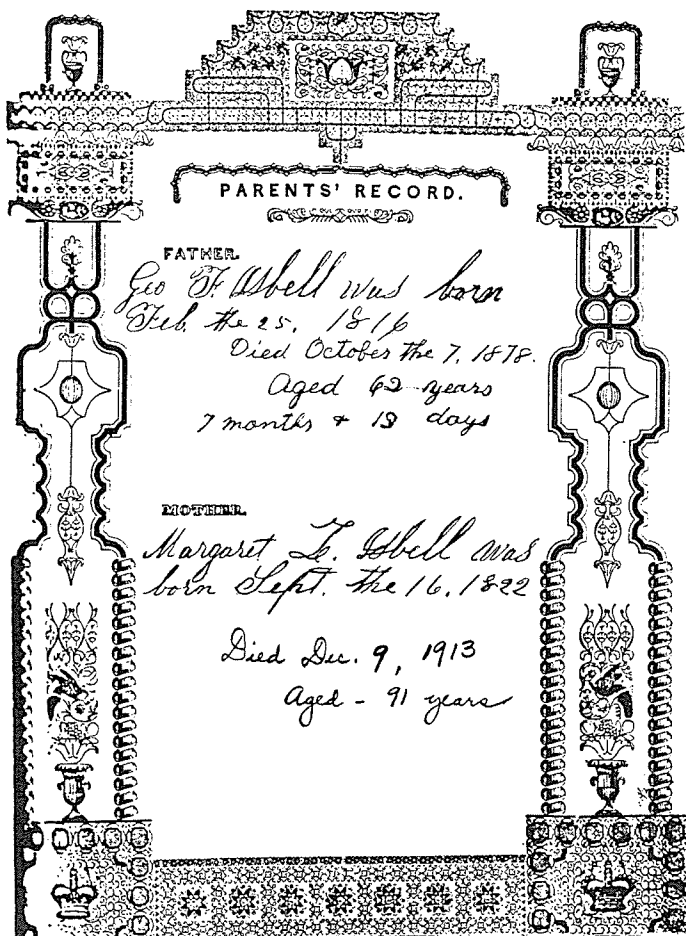 PARENTS' RECORD.
FATHER.
Geo F. Isbell was born
Feb. the 25, 1816
Died October the 7, 1878.
Aged 62 years
7 months & 13 days
MOTHER.
Margaret L. Isbell was
born Sept. the 16, 1822
Died Dec. 9, 1913
Aged - 91 years